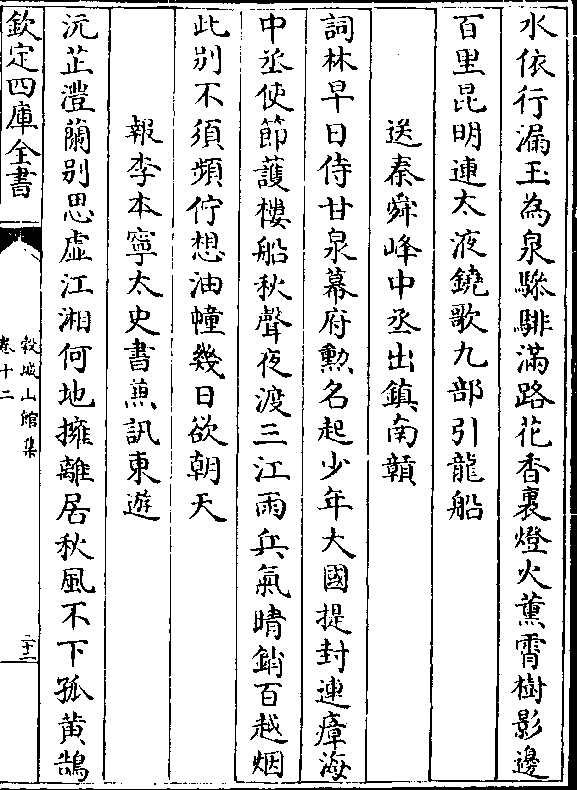 水依行漏玉為泉騄騑滿路花香裏燈火薰霄樹影邊
百里昆明連太液鐃歌九部引龍船
送秦舜峰中丞出鎮南贑
詞林早日侍甘泉幕府勲名起少年大國提封連瘴海
中丞使節護樓船秋聲夜渡三江雨兵氣晴銷百越烟
此别不須頻佇想油幢幾日欲朝天
報李本寧太史書蒹訊東遊
沅芷澧蘭别思虛江湘何地擁離居秋風不下孤黄鵠
欽定四庫全書
穀城山館集
卷十二
二十二